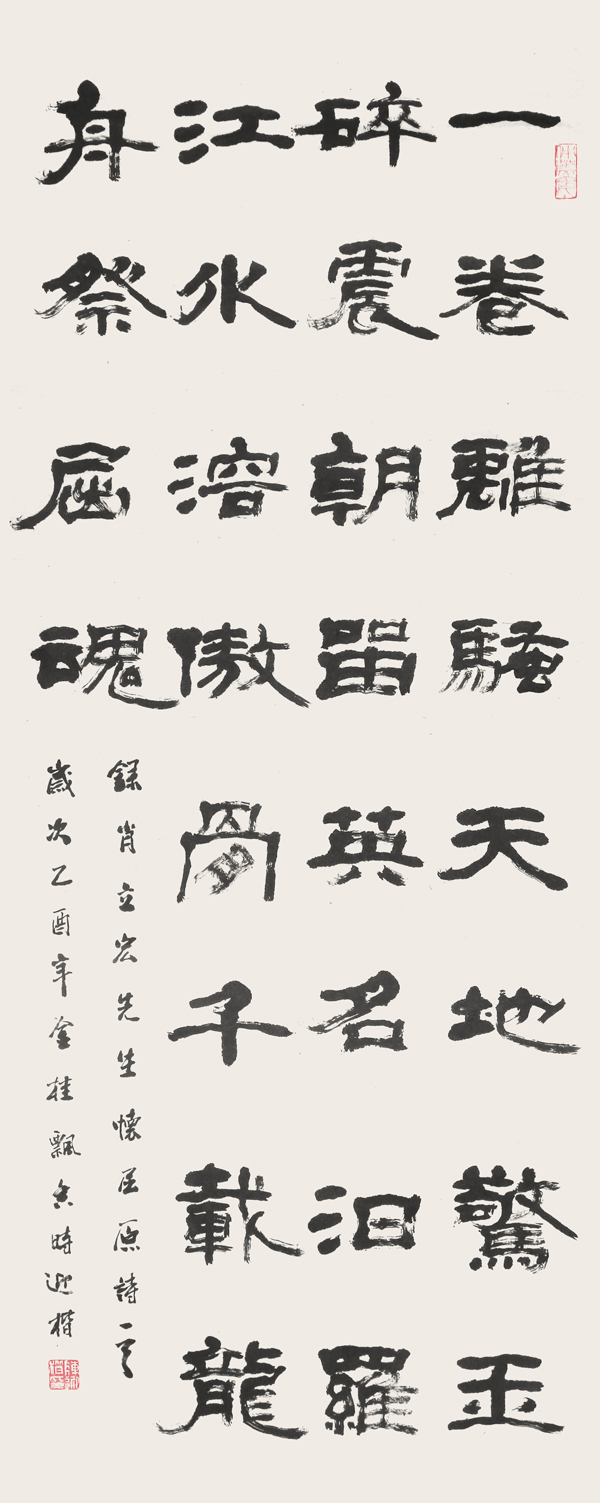 一卷離騷天地驚玉
碎震朝留英名汨羅
江水溶傲骨千載龍
舟祭屈魂
錄肖立宏先生懷屈原詩一首
歲次乙酉年金桂飄香時迎楷